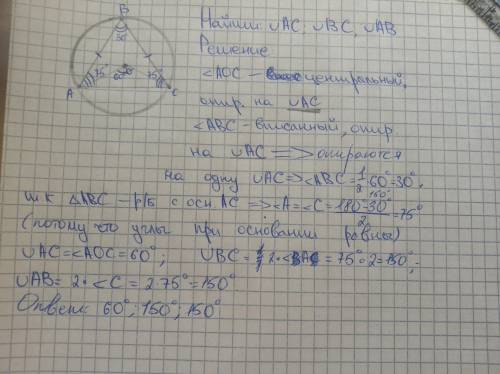 B
30°
75° 60° 75°
A C
Найти: ∪AC, ∪BC, ∪AB
Решение
∠AOC – центральный,
опир. на ∪AC
∠ABC – вписанный, опир.
на ∪AC => опираются
на одну ∪AC => ∠ABC = 1/2 · 60° = 30°,
т.к △ABC – р/б с осн. AC => ∠A = ∠C = 180° - 30° / 2 = 75°
150°
(потому что углы при основании равны)
∪AC = ∠AOC = 60°; ∪BC = 2 · ∠BAC = 75° · 2 = 150°;
∪AB = 2 · ∠C = 2 · 75° = 150°
Ответ: 60°; 150°; 150°